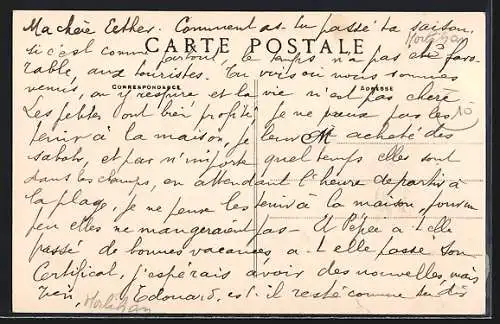 Ma chère Esther. Comment as-tu passé ta saison,
si c'est comme partout, le temps n'a pas été favo-
Morbihan
CARTE POSTALE
rable, aux touristes. Tu vois où nous sommes
CORRESPONDANCE
ADRESSE
venus, on y respire et la vie n'est pas chère
Les petites ont bien profité je ne peux pas les
10
tenir à la maison, je leur ai acheté des
sabots, et par n'importe quel temps elles sont
dans les champs, en attendant l'heure de partir à
la plage, je ne peux les tenir à la maison, pour un
peu elles ne mangeraient pas - Et Pépée a t-elle
passé de bonnes vacances, a-t-elle passé son
Certificat, j'espérais avoir des nouvelles, mais
rien, Edouard, est-il resté comme
Morbihan